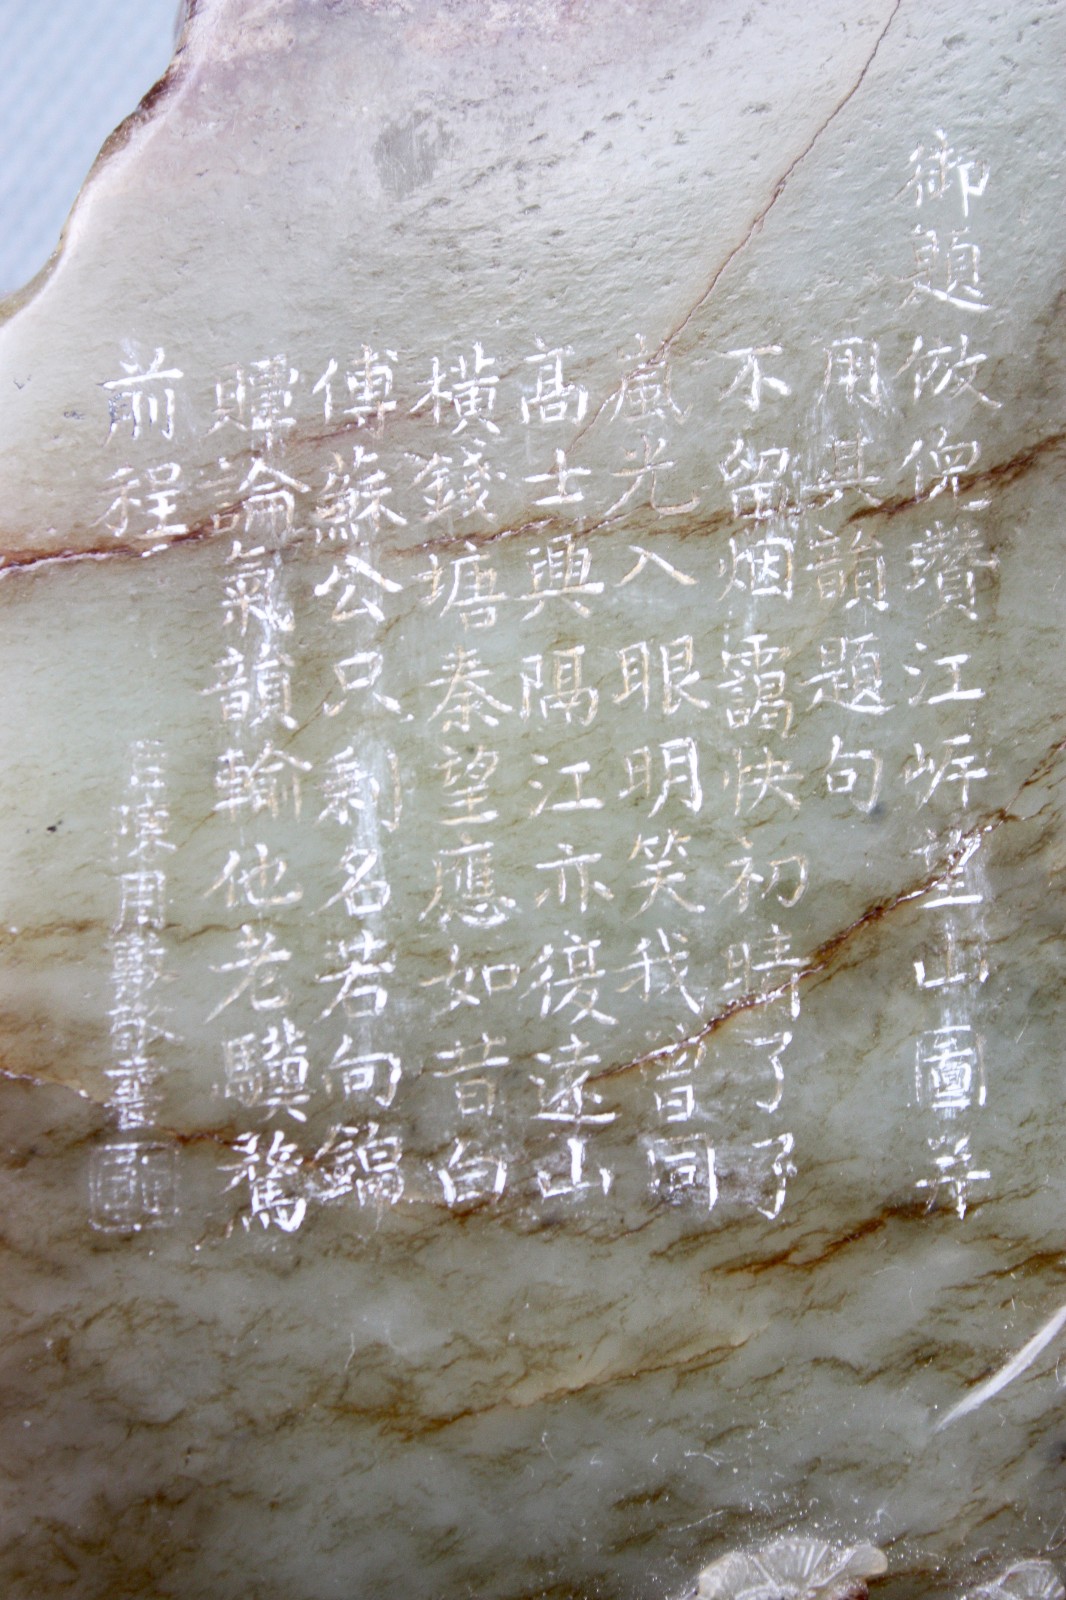 御題倣倪瓚江岸望山圖并
用其韻題句
不留烟靄快初晴了了
嵐光入眼明笑我曾同
高士興隔江亦復遠山
橫錢塘秦望應如昔白
傅蘇公只剩名若向鎬
暉論氣韻輸他老驥驁
前程
臣梁國敬書